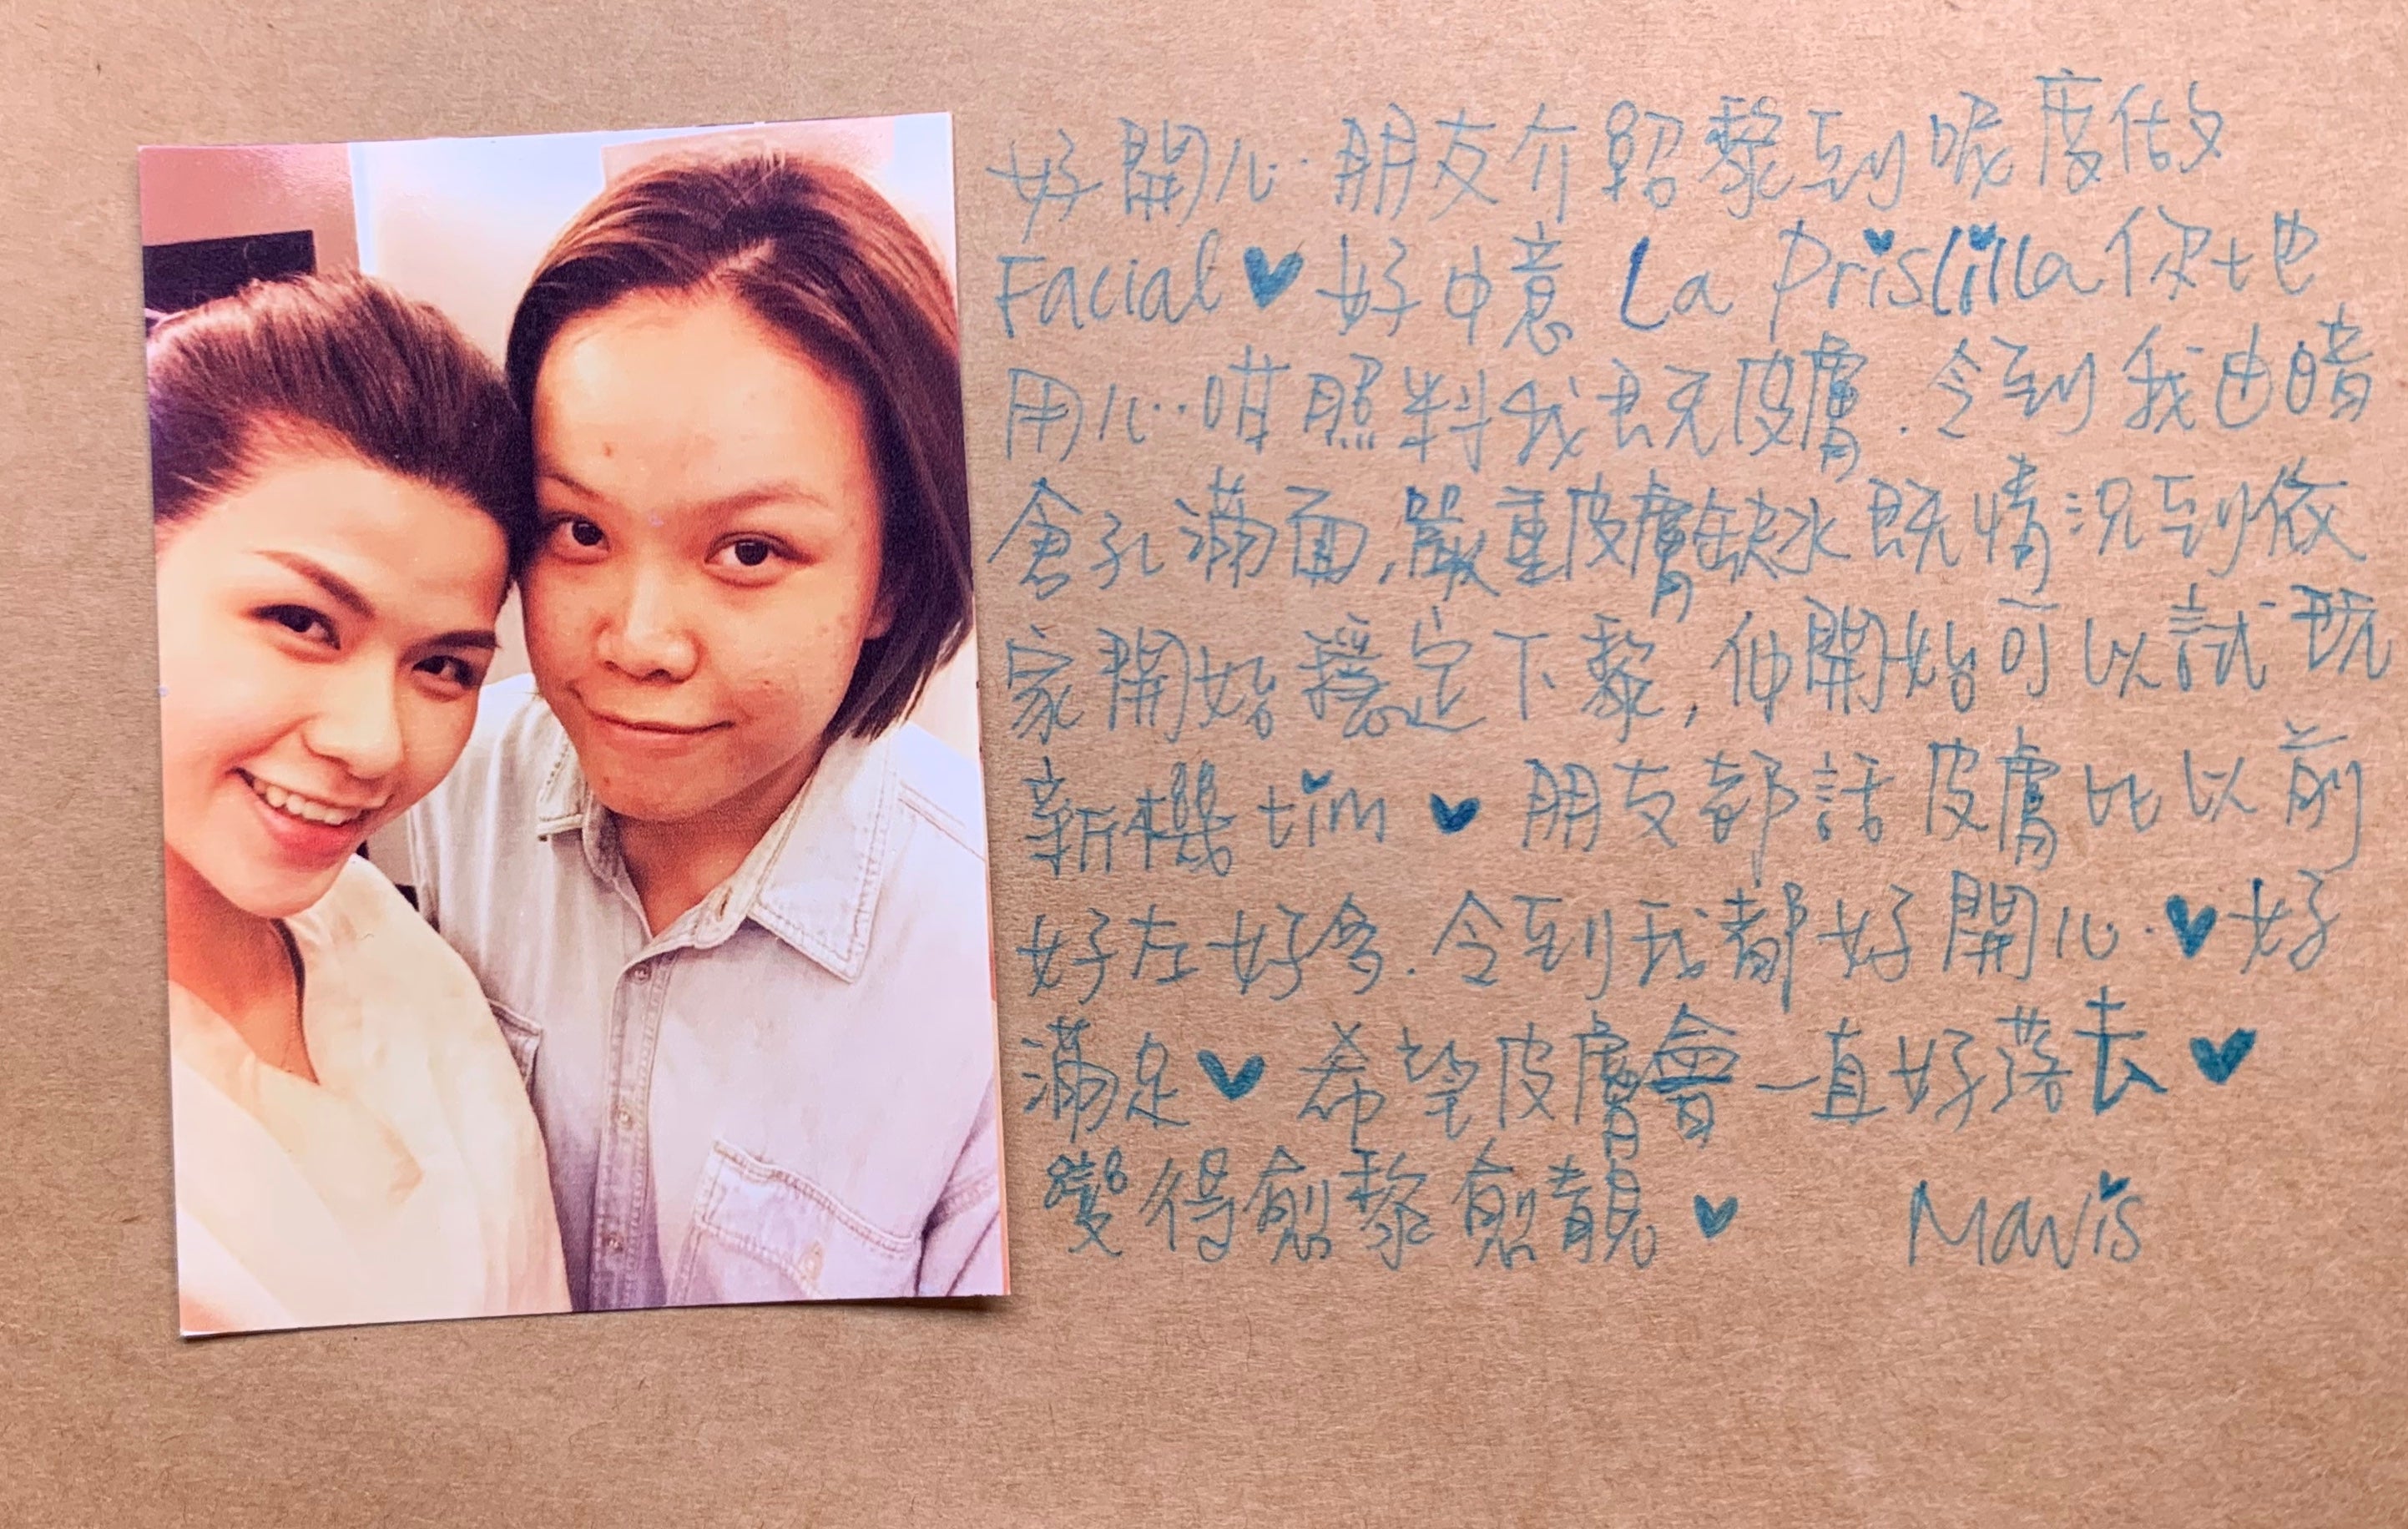 好開心朋友介紹黎到呢度做
Facial♥好中意 La Prislilla你地
用心咁照料我既皮膚.令到我由暗
倉孔滿面,嚴重皮膚缺水既情況到依
家開始穩定下黎,仲開始可以試玩
新機tim♥朋友都話皮膚比以前
好左好多.令到我都好開心.♥好
滿足♥希望皮膚會一直好落去♥
變得愈黎愈靚♥ Mavis